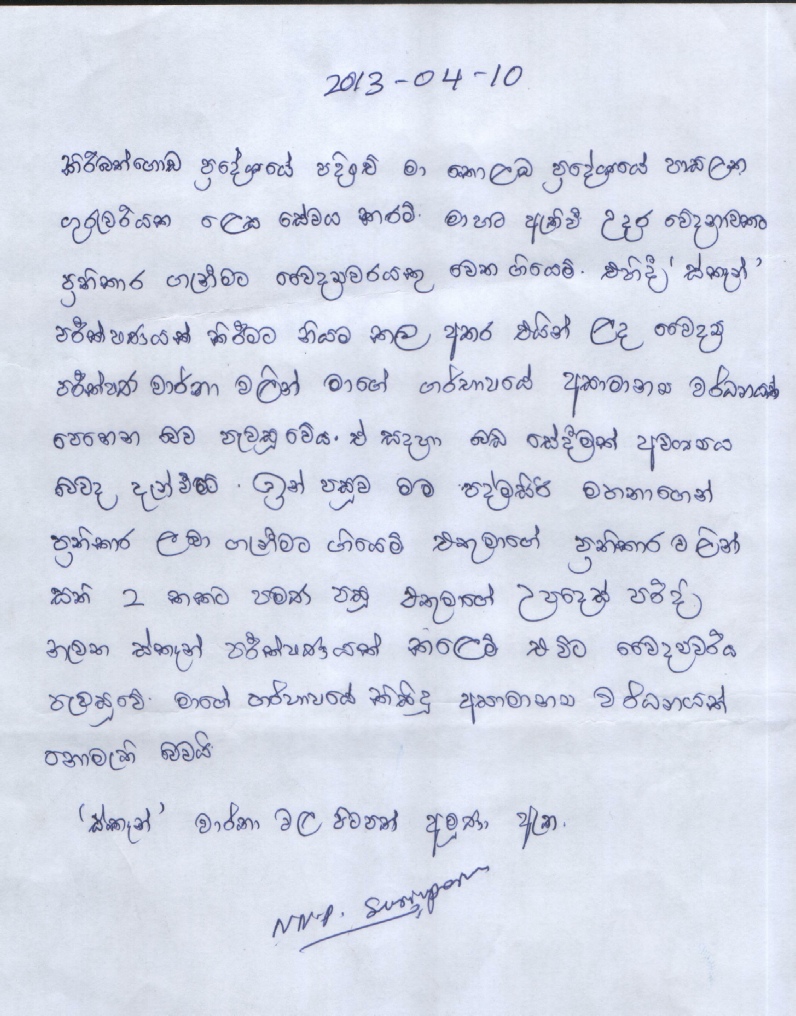 2013-04-10
කිරිබත්ගොඩ ප්‍රදේශයේ පදිංචි මා කොළඹ ප්‍රදේශයේ පාසලක
ගුරුවරියක ලෙස සේවය කරමි. මා හට ඇතිවී උදර වේදනාවකට
ප්‍රතිකාර ගැනීමට වෛද්‍යවරයකු වෙත ගියෙමි. එහිදී 'ස්කෑන්'
පරීක්ෂණයක් කිරීමට නියම කල අතර එයින් ලද වෛද්‍ය
පරීක්ෂණ වාර්තා වලින් මාගේ ගර්භාෂයේ අසාමාන්‍ය වර්ධනයක්
පෙනෙන බව පැවසූවේය. ඒ සදහා බඩ සේදීමක් අවශ්‍යය
බවද දැන්වීය. ඉන් පසුව මම පද්මසිරි මහතාගෙන්
ප්‍රතිකාර ලබා ගැනීමට ගියෙමි එතුමාගේ ප්‍රතිකාර වලින්
සති 2 කකට පමණ පසු එතුමාගේ උපදෙස් පරිදි
නැවත ස්කෑන් පරීක්ෂණයක් කලෙමි එවිට වෛද්‍යවරිය
පැවසූවේ. මාගේ ගර්භාෂයේ කිසිදු අසාමාන්‍ය වර්ධනයක්
නොමැති බවයි
'ස්කෑන්' වාර්තා වල පිටපත් අමුණා ඇත.